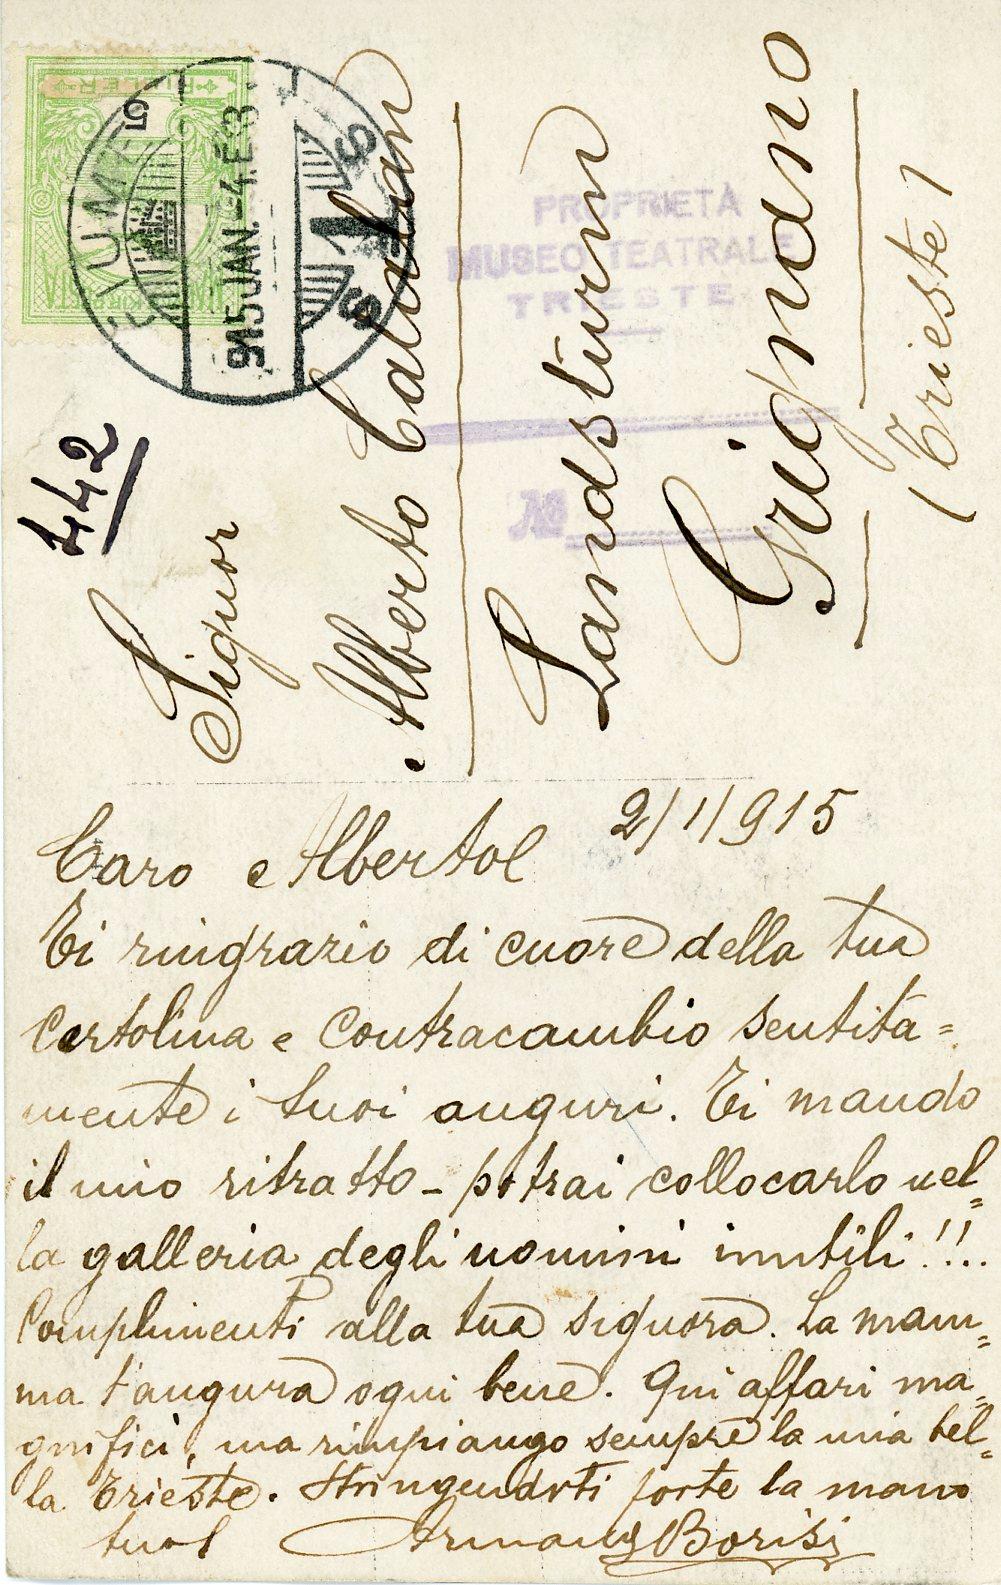 FIUME
915 JAN. -4. E 3
5
442
Signor
Alberto Catalan
Landsturm
Grignano
(Trieste)
PROPRIETÀ
MUSEO TEATRALE
TRIESTE
№
2/1/915
Caro Alberto!
Ti ringrazio di cuore della tua
Cartolina e Contracambio sentita=
mente i tuoi auguri. Ti mando
il mio ritratto - potrai collocarlo nel=
la galleria degli uomini inutili!!..
Complimenti alla tua signora. La mam=
ma t'augura ogni bene. Qui affari ma=
gnifici, ma rimpiango sempre la mia bel=
la Trieste. Stringendoti forte la mano
tuo Borisi